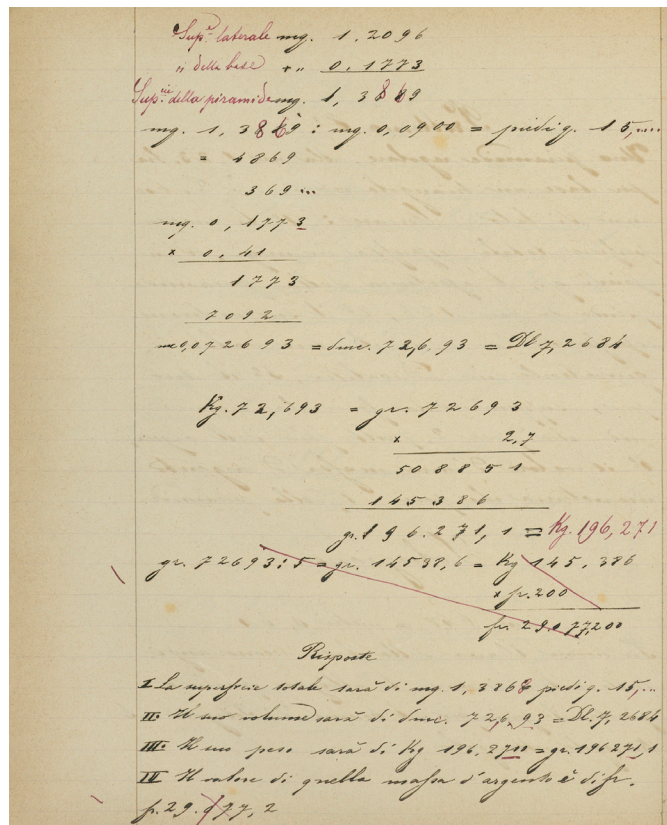 Sup.e laterale mq. 1,2096
" della base + " 0,1773
Sup.cie della piramide mq. 1,3869
mq. 1,3869 : mq. 0,0900 = piedi q. 15,....
= 4869
369...
mq. 0,1773
x 0,41
1773
7092
mc 0,072693 = dmc. 72,6.93 = Dl 7,2684
Kg. 72,693 = gr. 72693
x 2,7
508851
145386
gr. 196.271,1 = Kg. 196,271
gr. 72693:5 = gr. 14538,6 = Kg 145,386
x fr. 200
fr. 29.077,200
Risposte
I La superficie totale sarà di mq. 1,3868 piedi q. 15,...
II: Il suo volume sarà di dmc. 72,6.93 = Dl. 7,2684
III: Il suo peso sarà di Kg 196,2710 = gr. 196271,1
IV Il valore di quella massa d'argento è di fr.
fr. 29.077,2